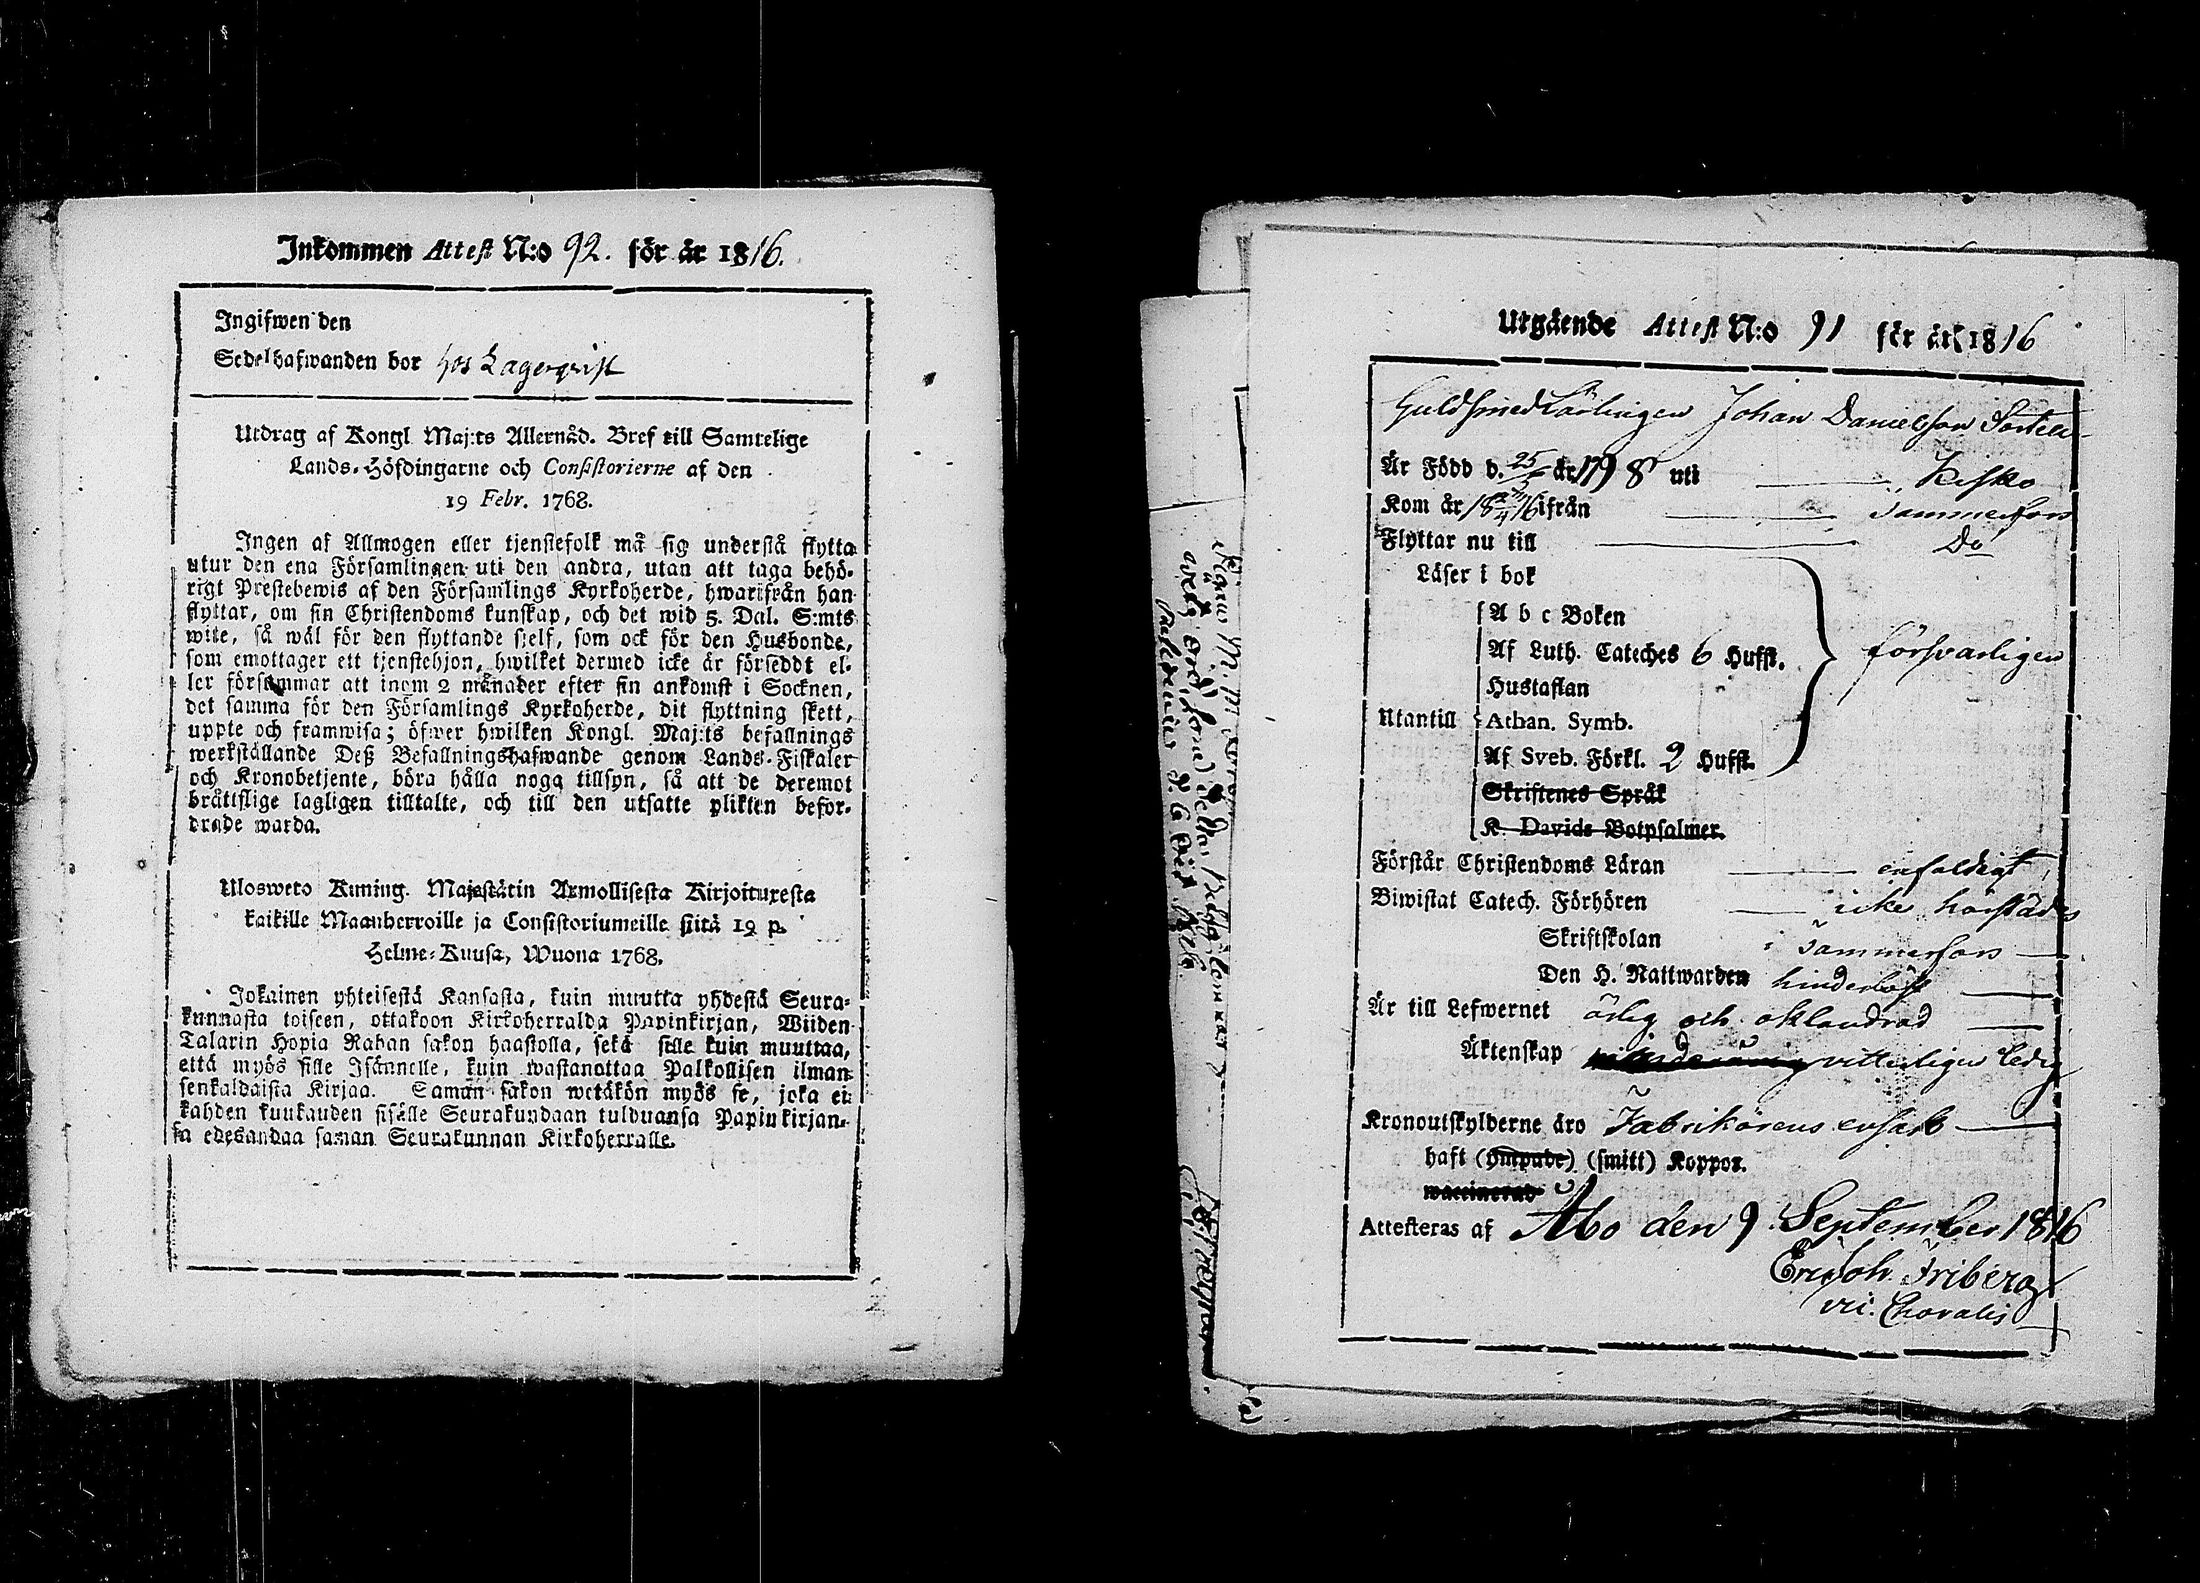 Inkommen Attest N:o 92. för år 1816.
Ingifwen den
Sedelhafwanden bor hos Lagerqvist
Utdrag af Kongl. Maj:ts Allernåd. Bref till Samtelige
Lands-Höfdingarne och Consistorierne af den
19 Febr. 1768.
Ingen af Allmogen eller tjenstefolk må sig understå flytta
utur den ena Församlingen uti den andra, utan att taga behö-
rigt Prestebewis af den Församlings Kyrkoherde, hwarifrån han
flyttar, om sin Christendoms kunskap, och det wid 5. Dal. S:mts
wite, så wäl för den flyttande sjelf, som ock för den Husbonde,
som emottager ett tjenstehjon, hwilket dermed icke är förseddt el-
ler försummar att inom 2 månader efter sin ankomst i Socknen,
det samma för den Församlings Kyrkoherde, dit flyttning skett,
uppte och framwisa; öfwer hwilken Kongl. Maj:ts befallnings
werkställande Deß Befallningshafwande genom Lands-Fiskaler
och Kronobetjente, böra hålla noga tillsyn, så att de deremot
bråttslige lagligen tilltalte, och till den utsatte plikten befor-
drade warda.
Ulosweto Kuning. Majestätin Armollisesta Kirjoituxesta
kaikille Maanherroille ja Consistoriumeille siitä 19 p.
Helme-Kuusa, Wuona 1768.
Jokainen yhteisestä Kansasta, kuin muutta yhdestä Seura-
kunnasta toiseen, ottakoon Kirkoherralda Papinkirjan, Wiiden
Talarin Hopia Rahan sakon haastolla, sekä sille kuin muuttaa,
että myös sille Isännelle, kuin wastanottaa Palkollisen ilman
senkaldaista Kirjaa. Saman sakon wetäkön myös se, joka ei
kahden kuukauden sisälle Seurakundaan tulduansa Papinkirjan-
sa edesandaa saman Seurakunnan Kirkoherralle.
Utgående Attest N:o 91 för år 1816
Guldsmed Lärlingen Johan Danielsson
Är Född d. 25/6 år 1798 uti Kisko
Kom år 18 16 ifrån Tammerfors
Flyttar nu till Do
Läser i bok
A b c Boken
Af Luth. Cateches 6 Hufst. försvarligen
Hustaflan
Utantill Athan. Symb.
Af Sveb. Förkl. 2 Hufst.
Skriftenes Språk
K. Davids Botpsalmer.
Förstår Christendoms Läran enfaldigt
Biwistat Catech. Förhören icke härstädes
Skriftskolan i Tammerfors
Den H. Nattwarden hinderlöst
Är till Lefwernet ärlig och oklandrad
Äktenskap vitterligen ledig
Kronoutskylderne äro Fabrikörens ensak
haft (ympade) (smitt) Koppor.
waccinerad
Attesteras af Åbo den 9 September 1816
Eric Joh. Friberg
vic. Choralis